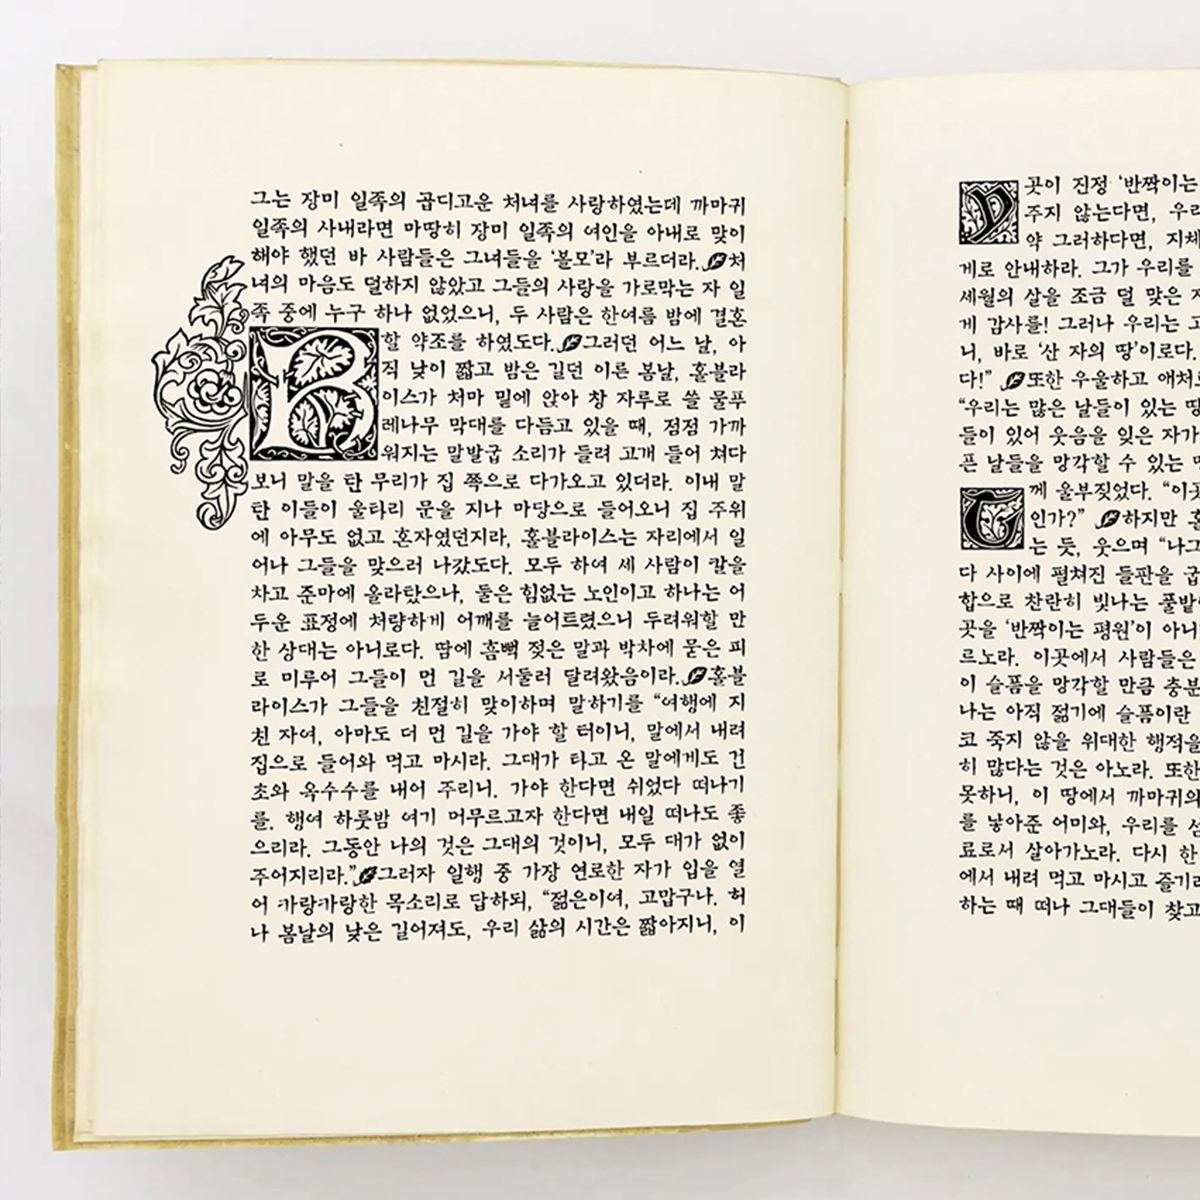 그는 장미 일족의 곱디고운 처녀를 사랑하였는데 까마귀
일족의 사내라면 마땅히 장미 일족의 여인을 아내로 맞이
해야 했던 바 사람들은 그녀들을 ‘볼모’라 부르더라. 처
녀의 마음도 덜하지 않았고 그들의 사랑을 가로막는 자 일
족 중에 누구 하나 없었으니, 두 사람은 한여름 밤에 결혼
R
할 약조를 하였도다. 그러던 어느 날, 아
직 낮이 짧고 밤은 길던 이른 봄날, 홀블라
이스가 처마 밑에 앉아 창 자루로 쓸 물푸
레나무 막대를 다듬고 있을 때, 점점 가까
워지는 말발굽 소리가 들려 고개 들어 쳐다
보니 말을 탄 무리가 집 쪽으로 다가오고 있더라. 이내 말
탄 이들이 울타리 문을 지나 마당으로 들어오니 집 주위
에 아무도 없고 혼자였던지라, 홀블라이스는 자리에서 일
어나 그들을 맞으러 나갔도다. 모두 하여 세 사람이 칼을
차고 준마에 올라탔으나, 둘은 힘없는 노인이고 하나는 어
두운 표정에 처량하게 어깨를 늘어트렸으니 두려워할 만
한 상대는 아니로다. 땀에 흠뻑 젖은 말과 박차에 묻은 피
로 미루어 그들이 먼 길을 서둘러 달려왔음이라. 홀블
라이스가 그들을 친절히 맞이하며 말하기를 “여행에 지
친 자여, 아마도 더 먼 길을 가야 할 터이니, 말에서 내려
집으로 들어와 먹고 마시라. 그대가 타고 온 말에게도 건
초와 옥수수를 내어 주리니. 가야 한다면 쉬었다 떠나기
를. 행여 하룻밤 여기 머무르고자 한다면 내일 떠나도 좋
으리라. 그동안 나의 것은 그대의 것이니, 모두 대가 없이
주어지리라.” 그러자 일행 중 가장 연로한 자가 입을 열
어 카랑카랑한 목소리로 답하되, “젊은이여, 고맙구나. 허
나 봄날의 낮은 길어져도, 우리 삶의 시간은 짧아지니, 이
곳이 진정 ‘반짝이는
주지 않는다면, 우리
약 그러하다면, 지체
게로 안내하라. 그가 우리를
세월의 살을 조금 덜 맞은
게 감사를! 그러나 우리는
니, 바로 ‘산 자의 땅’이로다.
다!” 또한 우울하고
“우리는 많은 날들이 있는 땅
들이 있어 웃음을 잃은 자가
픈 날들을 망각할 수 있는
께 울부짖었다. “이곳
인가?” 하지만 홀
는 듯, 웃으며 “나그
다 사이에 펼쳐진 들판을
합으로 찬란히 빛나는
곳을 ‘반짝이는 평원’이 아니
르노라. 이곳에서 사람들은
이 슬픔을 망각할 만큼 충분
나는 아직 젊기에 슬픔이란
코 죽지 않을 위대한 행적을
히 많다는 것은 아노라. 또한
못하니, 이 땅에서 까마귀의
를 낳아준 어미와, 우리를
료로서 살아가노라. 다시 한
에서 내려 먹고 마시고
하는 때 떠나 그대들이 찾고